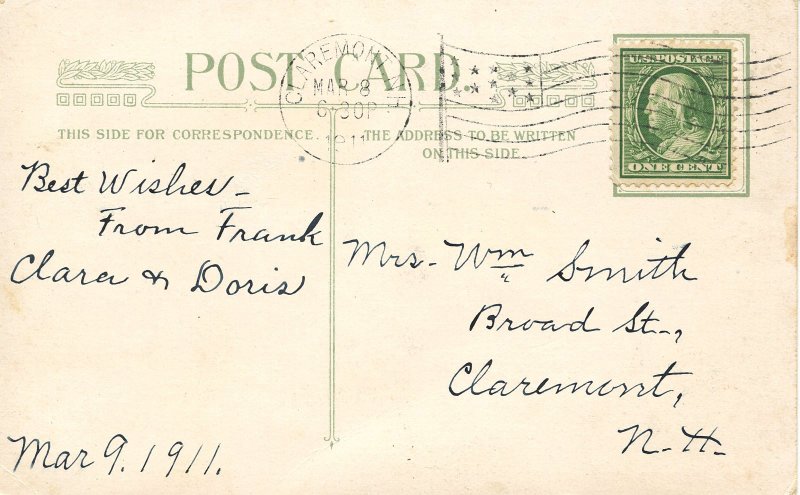 POST CARD.
CLAREMONT, N.H.
MAR 8
6-30P
1911
U.S. POSTAGE
ONE CENT
THIS SIDE FOR CORRESPONDENCE.
THE ADDRESS TO BE WRITTEN
ON THIS SIDE.
Best Wishes –
From Frank
Clara & Doris
Mar 9. 1911.
Mrs - Wm Smith
Broad St.,
Claremont,
N. H.